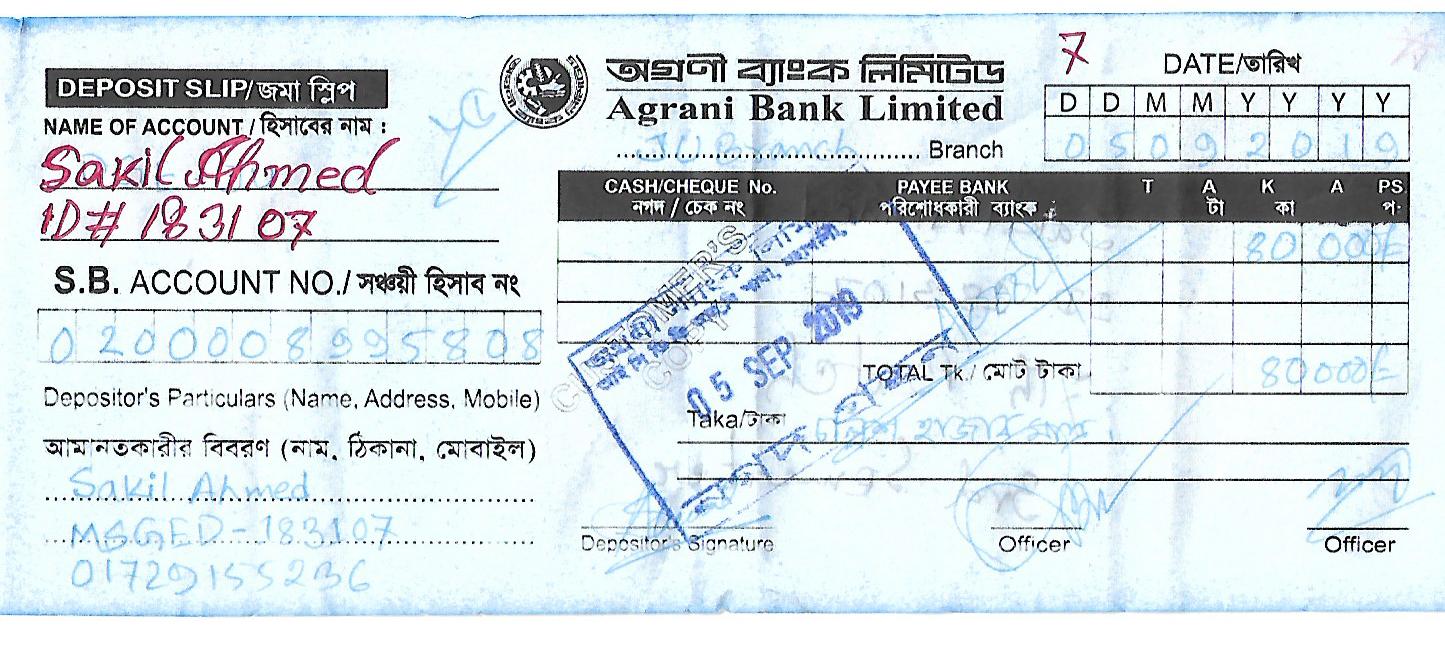 DEPOSIT SLIP/জমা স্লিপ
NAME OF ACCOUNT / হিসাবের নাম :
Sakil Ahmed
ID# 183107
S.B. ACCOUNT NO./ সঞ্চয়ী হিসাব নং
0200008995808
Depositor's Particulars (Name, Address, Mobile)
আমানতকারীর বিবরণ (নাম, ঠিকানা, মোবাইল)
Sakil Ahmed
MSGED-183107
01729155236
অগ্রণী ব্যাংক লিমিটেড
Agrani Bank Limited
JU Branch Branch
7
DATE/তারিখ
D D M M Y Y Y Y
0 5 0 9 2 0 1 9
CASH/CHEQUE No. PAYEE BANK T A K A PS
নগদ / চেক নং পরিশোধকারী ব্যাংক টা কা প.
80 000
CUSTOMER'S
COPY
05 SEP 2019
TOTAL Tk./ মোট টাকা
80000
Taka/টাকা
হাজার
নগদ গ্রহন
Depositor's Signature Officer Officer